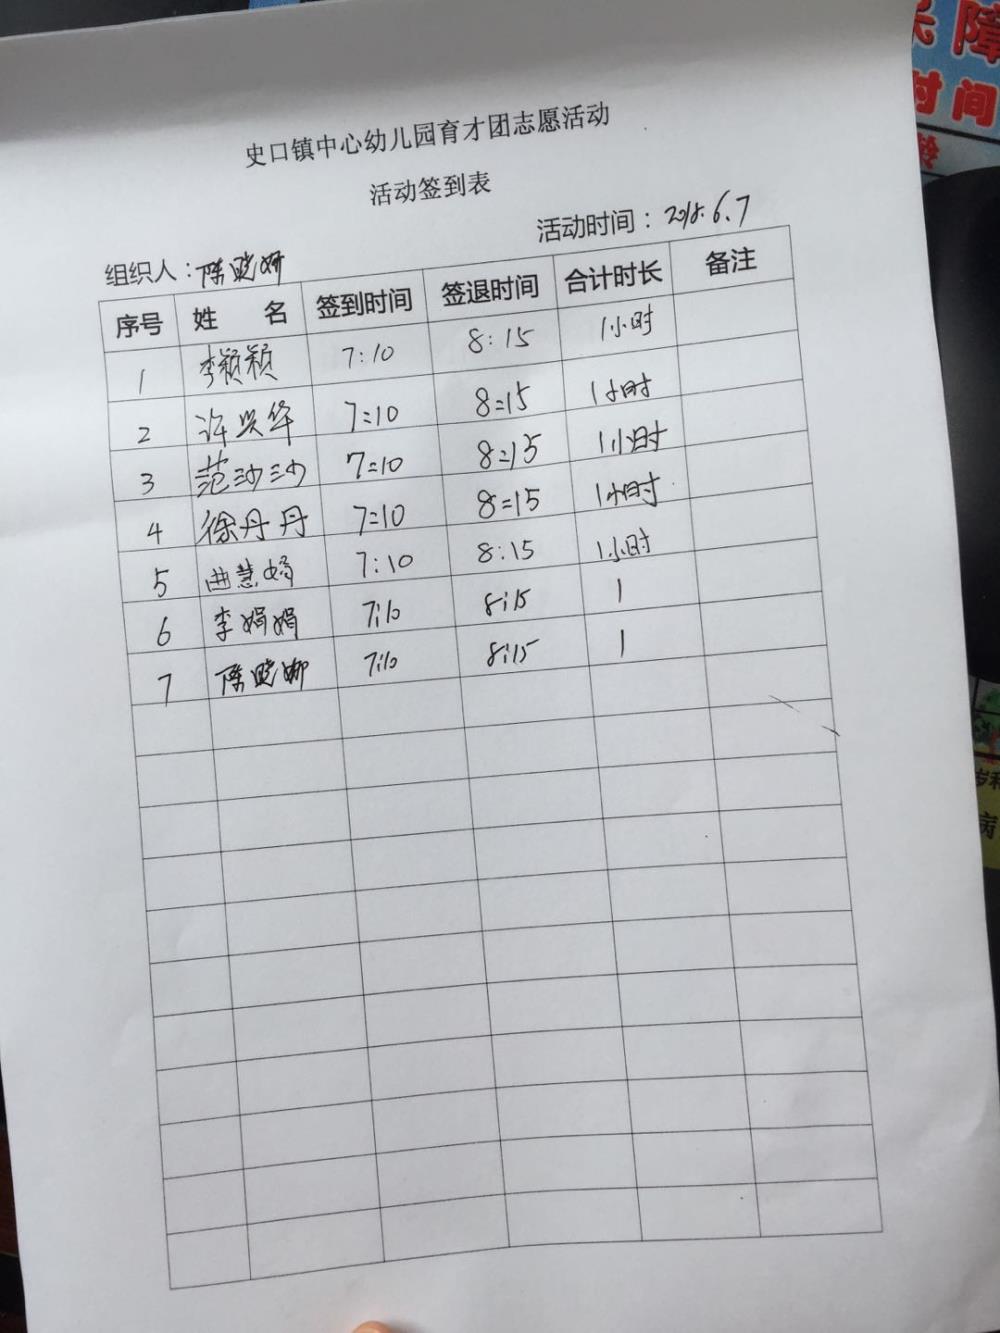 史口镇中心幼儿园育才团志愿活动
活动签到表
组织人：陈晓娜 活动时间：2018.6.7
序号 姓 名 签到时间 签退时间 合计时长 备注
1 李颖颖 7:10 8:15 1小时
2 许兴华 7:10 8:15 1小时
3 范沙沙 7:10 8:15 1小时
4 徐丹丹 7:10 8:15 1小时
5 曲慧娟 7:10 8:15 1小时
6 李娟娟 7:10 8:15 1
7 陈晓娜 7:10 8:15 1
障
时间
龄
病